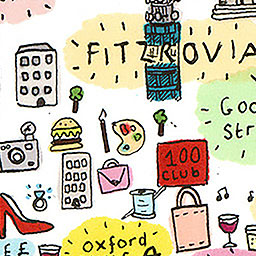 FITZROVIA
Goo
Str
100
CLUB
££
oxford